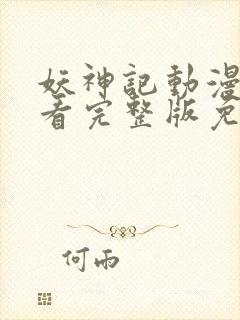 妖神記動漫
看完整版免
何雨